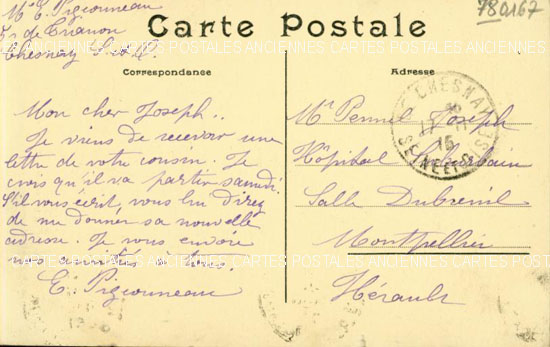 Carte Postale
780167
Mr E. Pigeonneau
5 r de Trianon
Chesnay S. et O.
CARTES POSTALES ANCIENNES CARTES POSTALES ANCIENNES CARTES POSTALES
Correspondance
Mon cher Joseph..
Je viens de recevoir une
lettre de votre cousin. Je
crois qu'il va partir samedi.
S'il vous écrit, vous lui direz
de me donner sa nouvelle
adresse. Je vous envoie
mes amitiés
E. Pigeonneau
Adresse
CHESNAY
15
SEINE ET OISE
Mr Pennel Joseph
Hôpital Suburbain
Salle Dubreuil
Montpellier
CARTES POSTALES ANCIENNES CARTES POSTALES ANCIENNES CARTES POSTALES
Hérault